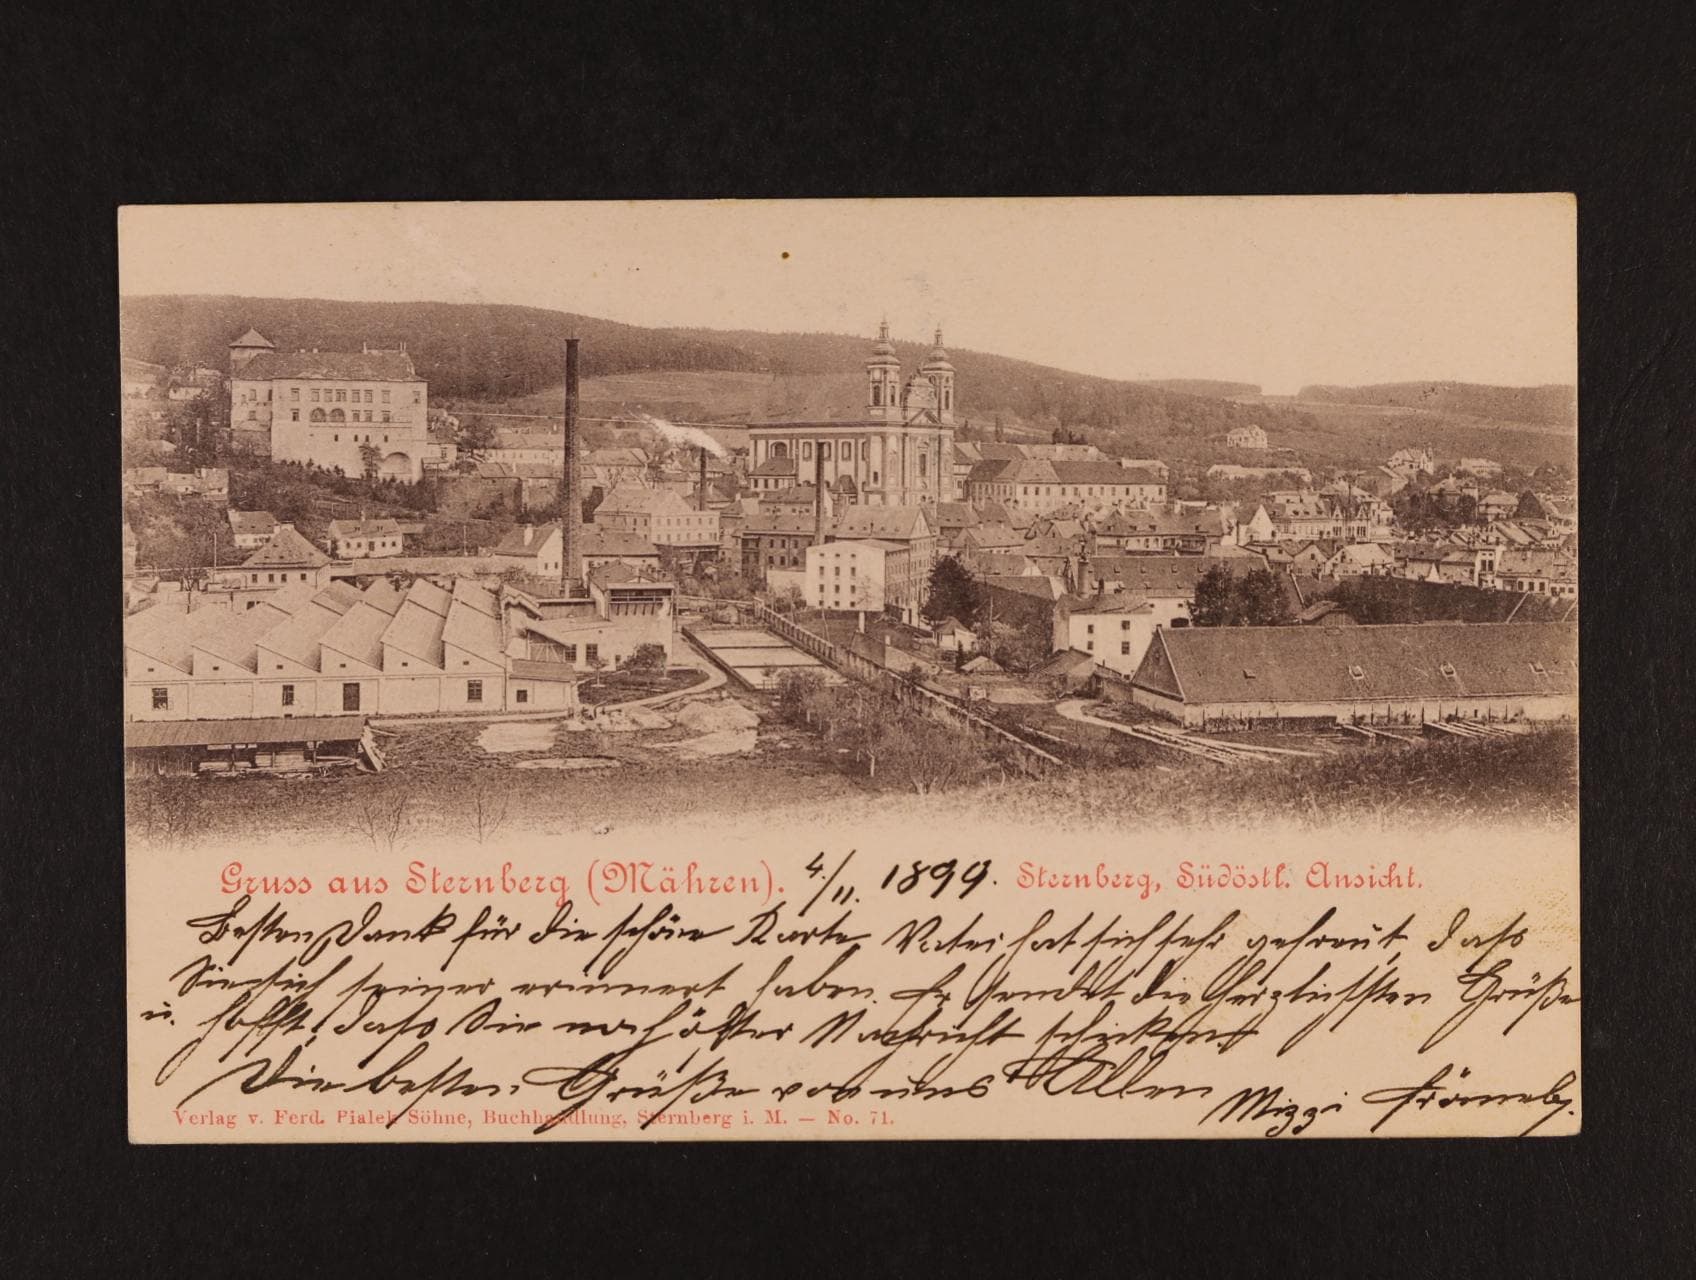 Gruss aus Sternberg (Mähren). 4./11. 1899. Sternberg, Südöstl. Ansicht.
Besten Dank für die schöne Karte. Vater hat sich sehr gefreut, dass
Sie sich seiner erinnert haben. Er sendet die herzlichsten Grüße
u. hofft, dass Sie noch öfter Nachricht schicken.
Die besten Grüße von uns Allen
Mizzi
Verlag v. Ferd. Pialek Söhne, Buchhandlung, Sternberg i. M. — No. 71.